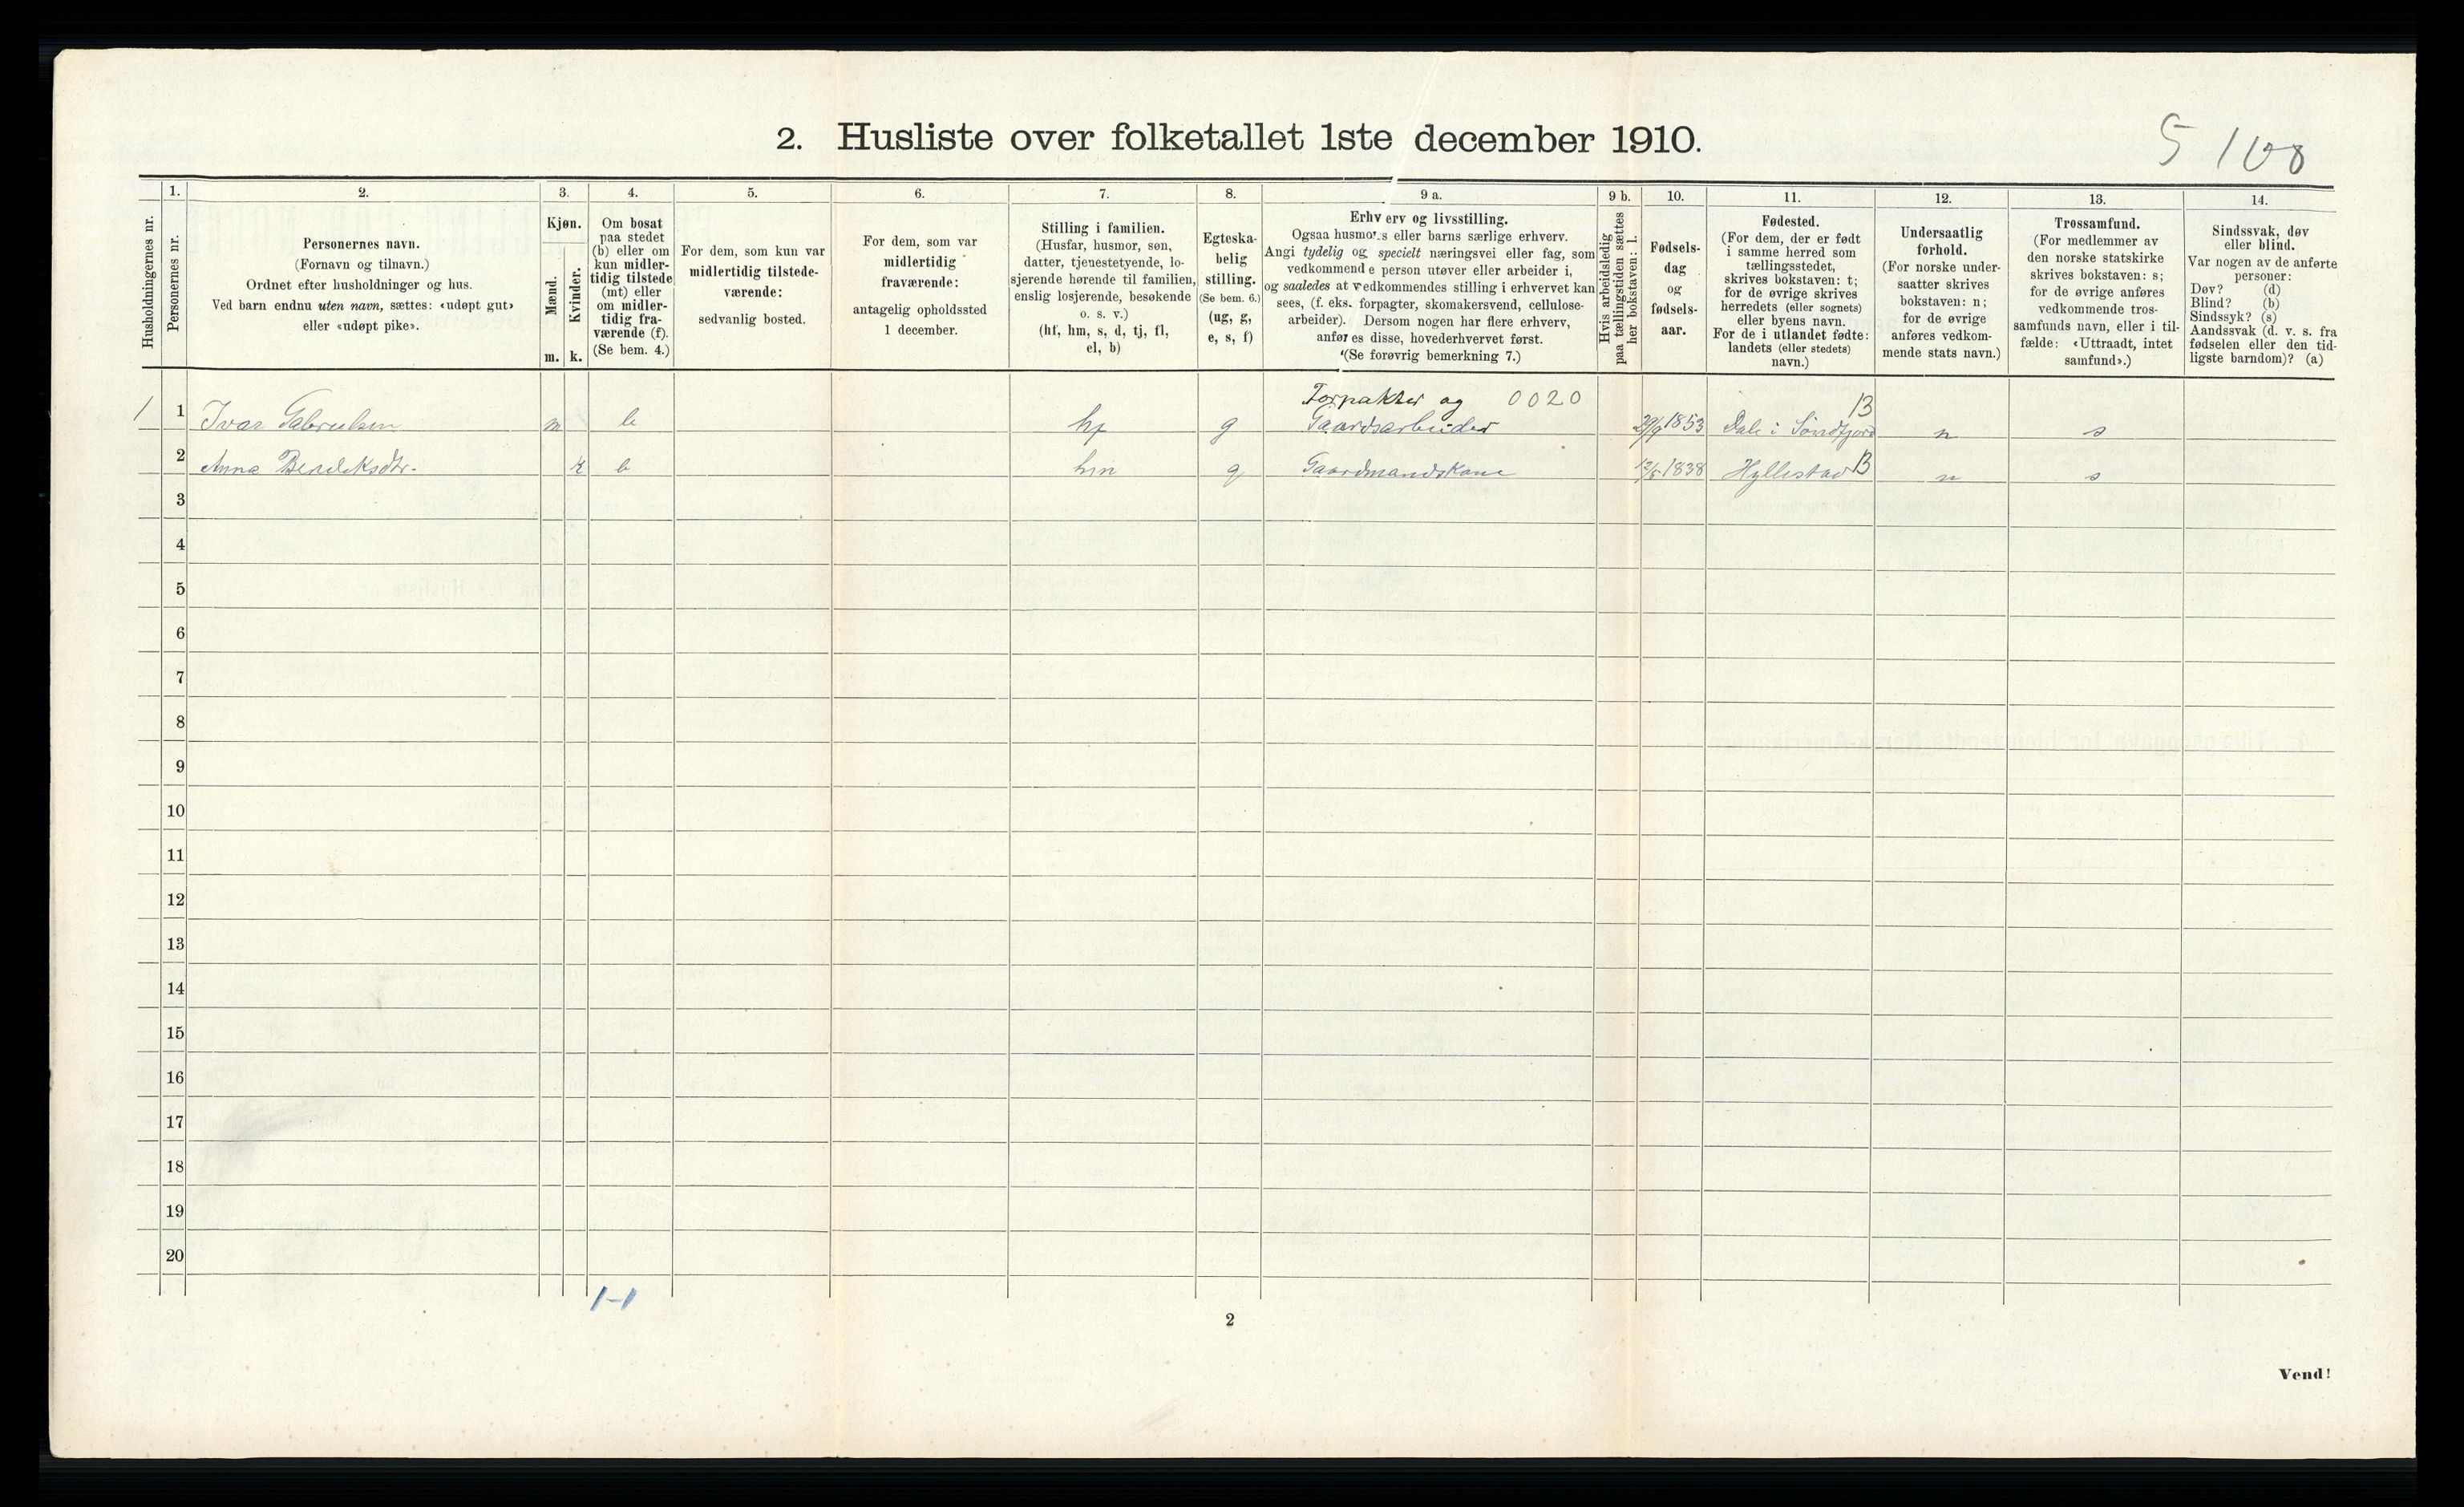 2. Husliste over folketallet 1ste december 1910.
5 100
1. 2. 3. 4. 5. 6. 7. 8. 9 a. 9 b. 10. 11. 12. 13. 14.
Husholdningernes nr.
Personernes nr.
Personernes navn.
(Fornavn og tilnavn.)
Ordnet efter husholdninger og hus.
Ved barn endnu uten navn, sættes: «udøpt gut»
eller «udøpt pike».
Kjøn.
Mænd.
Kvinder.
m. k.
Om bosat
paa stedet
(b) eller om
kun midler-
tidig tilstede
(mt) eller
om midler-
tidig fra-
værende (f).
(Se bem. 4.)
For dem, som kun var
midlertidig tilstede-
værende:
sedvanlig bosted.
For dem, som var
midlertidig
fraværende:
antagelig opholdssted
1 december.
Stilling i familien.
(Husfar, husmor, søn,
datter, tjenestetyende, lo-
sjerende hørende til familien,
enslig losjerende, besøkende
o. s. v.)
(hf, hm, s, d, tj, fl,
el, b)
Egteska-
belig
stilling.
(Se bem. 6.)
(ug, g,
e, s, f)
Erhverv og livsstilling.
Ogsaa husmors eller barns særlige erhverv.
Angi tydelig og specielt næringsvei eller fag, som
vedkommende person utøver eller arbeider i,
og saaledes at vedkommendes stilling i erhvervet kan
sees, (f. eks. forpagter, skomakersvend, cellulose-
arbeider). Dersom nogen har flere erhverv,
anføres disse, hovederhvervet først.
(Se forøvrig bemerkning 7.)
Hvis arbeidsledig
paa tællingstiden sættes
her bokstaven: l.
Fødsels-
dag
og
fødsels-
aar.
Fødested.
(For dem, der er født
i samme herred som
tællingsstedet,
skrives bokstaven: t;
for de øvrige skrives
herredets (eller sognets)
eller byens navn.
For de i utlandet fødte:
landets (eller stedets)
navn.)
Undersaatlig
forhold.
(For norske under-
saatter skrives
bokstaven: n;
for de øvrige
anføres vedkom-
mende stats navn.)
Trossamfund.
(For medlemmer av
den norske statskirke
skrives bokstaven: s;
for de øvrige anføres
vedkommende tros-
samfunds navn, eller i til-
fælde: «Uttraadt, intet
samfund».)
Sindssvak, døv
eller blind.
Var nogen av de anførte
personer:
Døv? (d)
Blind? (b)
Sindssyk? (s)
Aandssvak (d. v. s. fra
fødselen eller den tid-
ligste barndom)? (a)
Forpakter og 0020
1 1 Ivar Gabrielsen m b hf g Gaardsarbeider 29/9 1853 Dale i Søndfjord B n s
2 Anna Bendeksdtr. k b hm g Gaardmandskone 12/5 1838 Hyllestad B n s
3
4
5
6
7
8
9
10
11
12
13
14
15
16
17
18
19
20
1-1
2
Vend!